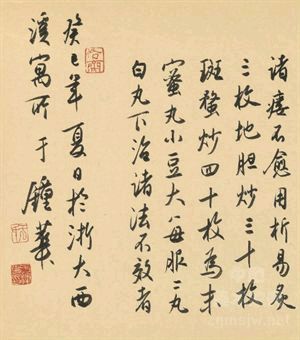 诸瘘不愈用析易炙
三枚地胆炒三十枚
斑蝥炒四十枚為末
蜜丸小豆大每服二丸
白丸下治诸法不效者
癸巳年夏日於浙大西
溪寓所于鍾華